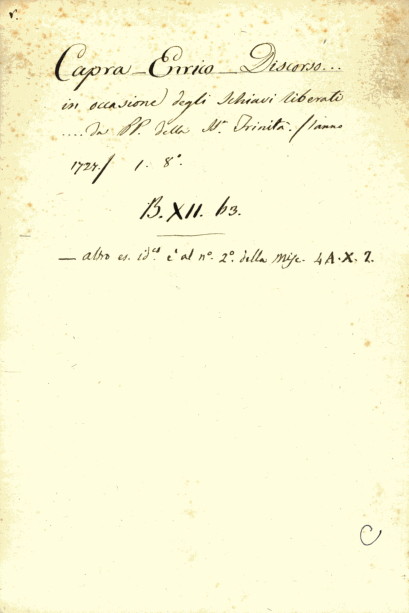 Capra _ Enrico _ Discorso...
in occasione degli Schiavi liberati
.... da PP. della SS. Trinità. /l'anno
1727./ 1. 8°.
B. XII. 63.
— altro es. id^es è al n°. 2°. della Misc. 4A.X.2.
C